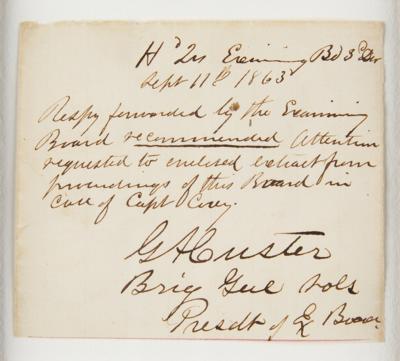 Hd Qrs Examining Bd 3d Div
Sept 11th 1863
Respy forwarded by the Examining
Board recommended Attention
requested to enclosed extract from
proceedings of this Board in
case of Capt Covey.
GACuster
Brig Genl Vols
Presdt of Ex Board